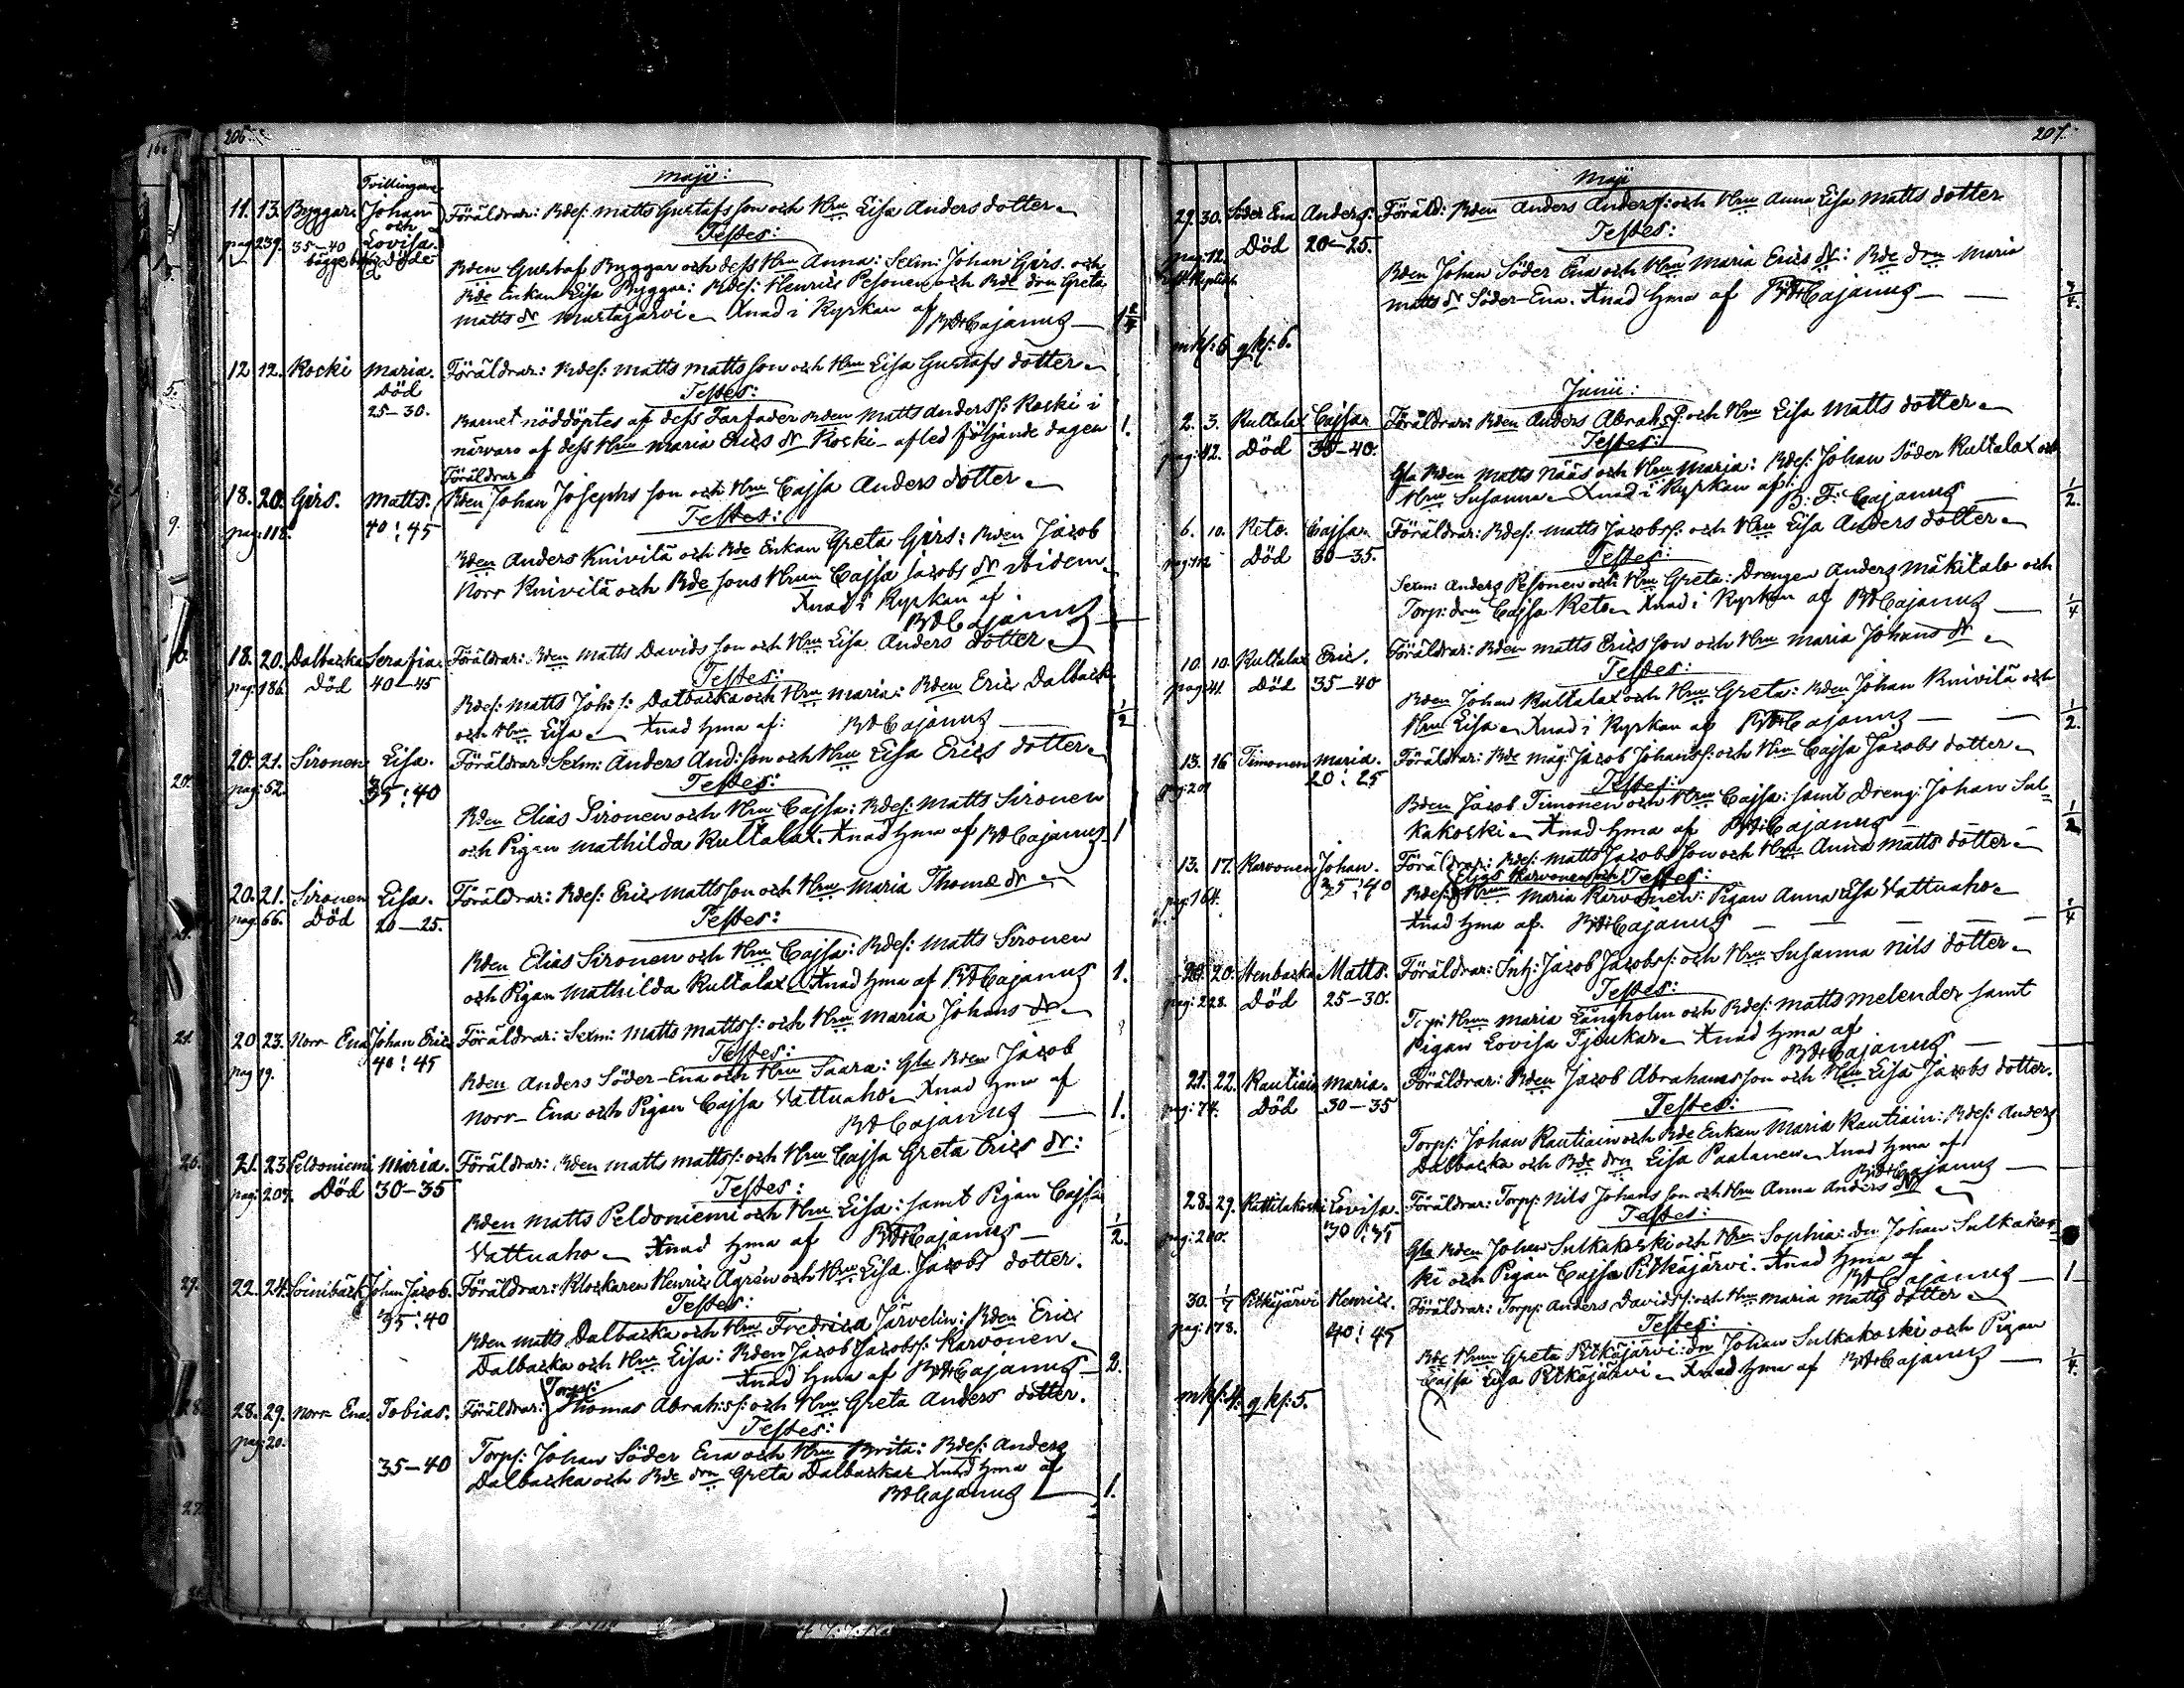 206.
maji:
Tvillingarne
11. 13. Byggar: Johan Föräldrar: Bdes: Matts Gustafs son och Hru Lisa Anders dotter
och
pag: 239. 35-40 Lovisa. Testes:
bägge döde
Bden Gustaf Byggar och dess Hru Anna: Sexm: Johan Girs. och
Bde Enkan Lisa Byggar: Bdes: Henric Pesonen och Bde drn Greta
Matts dr Murtajärvi Xnad i Kyrkan af
BFCajanus
12 12. Koski Maria. Föräldrar: Bdes: Matts Matts son och Hru Lisa Gustafs dotter
Död Testes:
25-30. Barnet nöddöptes af dess Farfader Bden Matts Anderss: Koski i
närvaro af dess Hru Maria Erics dr Koski - afled följande dagen 1.
Föräldrar
18. 20. Girs. Matts. Bden Johan Josephs son och Hru Cajsa Anders dotter
pag: 118. 40:45 Testes:
Bden Anders Knivilä och Bde Enkan Greta Girs: Bden Jacob
Norr Knivilä och Bde sons Hrun Cajsa Jacobs dr ibidem
Xnad i Kyrkan af
BFCajanus
18. 20. Dalbacka Serafia. Föräldrar: Bden Matts Davids son och Hru Lisa Anders dotter
pag: 186. Död 40-45 Testes:
Bdes: Matts Joh: s: Dalbacka och Hru Maria: Bden Eric Dalback
och Hru Lisa Xnad hma af: BFCajanus 1/2
20. 21. Sironen Lisa. Föräldrar: Sexm: Anders And: son och Hru Lisa Erics dotter
pag: 52. 35:40 Testes:
Bden Elias Sironen och Hru Cajsa: Bdes: Matts Sironen
och Pigan Mathilda Kultalax. Xnad hma af BFCajanus 1
20. 21. Sironen Lisa. Föräldrar: Bdes: Eric Matts son och Hru Maria Thomæ dr
pag: 66. Död 20-25. Testes:
Bden Elias Sironen och Hru Cajsa: Bdes: Matts Sironen
och Pigan Mathilda Kultalax Xnad hma af BFCajanus 1.
20 23. Norr Ena Johan Eric Föräldrar: Sexm: Matts Mattss: och Hru Maria Johans dr
pag 19. 40:45 Testes:
Bden Anders Söder-Ena och Hru Saara: Gla Bden Jacob
Norr-Ena och Pigan Cajsa Vattuaho Xnad hma af
BFCajanus 1.
21. 23. Peldoniemi Maria. Föräldrar: Bden Matts Mattss: och Hru Cajsa Greta Erics dr:
pag: 207. Död 30-35 Testes:
Bden Matts Peldoniemi och Hru Lisa: samt Pigan Cajsa
Vattuaho Xnad hma af BFCajanus 1/2.
22. 24. Soinibäck Johan Jacob. Föräldrar: Klockaren Henric Agrén och Hru Lisa Jacobs dotter.
35:40 Testes:
Bden Matts Dalbacka och Hru Fredrica Järvelin: Bden Eric
Dalbacka och Hru Lisa: Bden Jacob Jacobss: Karvonen
Xnad hma af BFCajanus 2.
Torps:
28. 29. Norr Ena. Tobias. Föräldrar: Thomas Abrah: s: och Hru Greta Anders dotter.
pag: 20. Testes:
35-40 Torps: Johan Söder Ena och Hru Brita: Bdes: Anders
Dalbacka och Bde drn Greta Dalbacka Xnad hma af
BFCajanus 1.
207.
Maji
29. 30. Söder Ena Anders: Föräld: Bden Anders Anderss: och Hru Anna Lisa Matts dotter
pag: 12. Död 20-25. Testes:
Bden Johan Söder Ena och Hru Maria Erics dr: Bde drn Maria
Matts dr Söder-Ena. Xnad hma af BFCajanus 3/4.
mks: 6 qks: 6.
Junii:
2. 3. Kultalax Cajsa Föräldrar: Bden Anders Abrah: s: och Hru Lisa Matts dotter
pag: 42. Död 35-40. Testes:
Gla Bden Matts Nääs och Hru Maria: Bdes: Johan Söder Kultalax och
Hru Susanna Xnad i Kyrkan af: B: F: Cajanus 1/2.
6. 10. Keto. Cajsa Föräldrar: Bdes: Matts Jacobss: och Hru Lisa Anders dotter
Död 30-35. Testes:
Sexm: Anders Pesonen och Hru Greta: Drengen Anders Mäkitalo och
Torp: drn Cajsa Keto Xnad i Kyrkan af BFCajanus 1/4
10. 10. Kultalax Eric. Föräldrar: Bden Matts Erics son och Hru Maria Johans dr
pag: 41. Död 35-40 Testes:
Bden Johan Kultalax och Hru Greta: Bden Johan Knivilä och
Hru Lisa Xnad i Kyrkan af BFCajanus 1/2.
13. 16 Timonen Maria. Föräldrar: Bde måg: Jacob Johanss: och Hru Cajsa Jacobs dotter
pag: 201 20:25 Testes:
Bden Jacob Timonen och Hru Cajsa: samt Dreng: Johan Sul-
kakoski Xnad hma af BFCajanus 1/2
13. 17. Karvonen Johan. Föräldrar: Bdes: Matts Jacobs son och Hru Anna Matts dotter
Elias Karvonen och Testes:
pag: 164. 35:40 Bdes: Hrun Maria Karvonen: Pigan Anna Lisa Vattuaho
Xnad hma af. BFCajanus
20. 20. Stenbacka Matts. Föräldrar: Inh: Jacob Jacobss: och Hru Susanna Nils dotter
pag: 228. Död 25-30. Testes:
Torp: Hrun Maria Långholm och Bdes: Matts Melender samt
Pigan Lovisa Tjäukar Xnad hma af
BFCajanus
21. 22. Rautiain Maria. Föräldrar: Bden Jacob Abrahams son och Hru Lisa Jacobs dotter.
pag: 74. Död 30-35 Testes:
Torps: Johan Rautiain och Bde Enkan Maria Rautiain: Bdes: Anders
Dalbacka och Bde drn Lisa Paalanen Xnad hma af
BFCajanus
28. 29. Kattilakoski Lovisa. Föräldrar: Torps: Nils Johans son och Hru Anna Anders dr
pag: 200. 30:35 Testes:
Gla Bden Johan Sulkakoski och Hru Sophia: drn Johan Sulkakos-
ki och Pigan Cajsa Pitkäjärvi. Xnad hma af
BFCajanus 1
30. 1/7 Pitkäjärvi Henric. Föräldrar: Torps: Anders Davidss: och Hru Maria Matts dotter
pag: 178. 40:45 Testes:
Bde Hrun Greta Pitkäjärvi: drn Johan Sulkakoski och Pigan
Cajsa Lisa Pitkäjärvi Xnad hma af BFCajanus 1/4.
mks: 4: qks: 5.